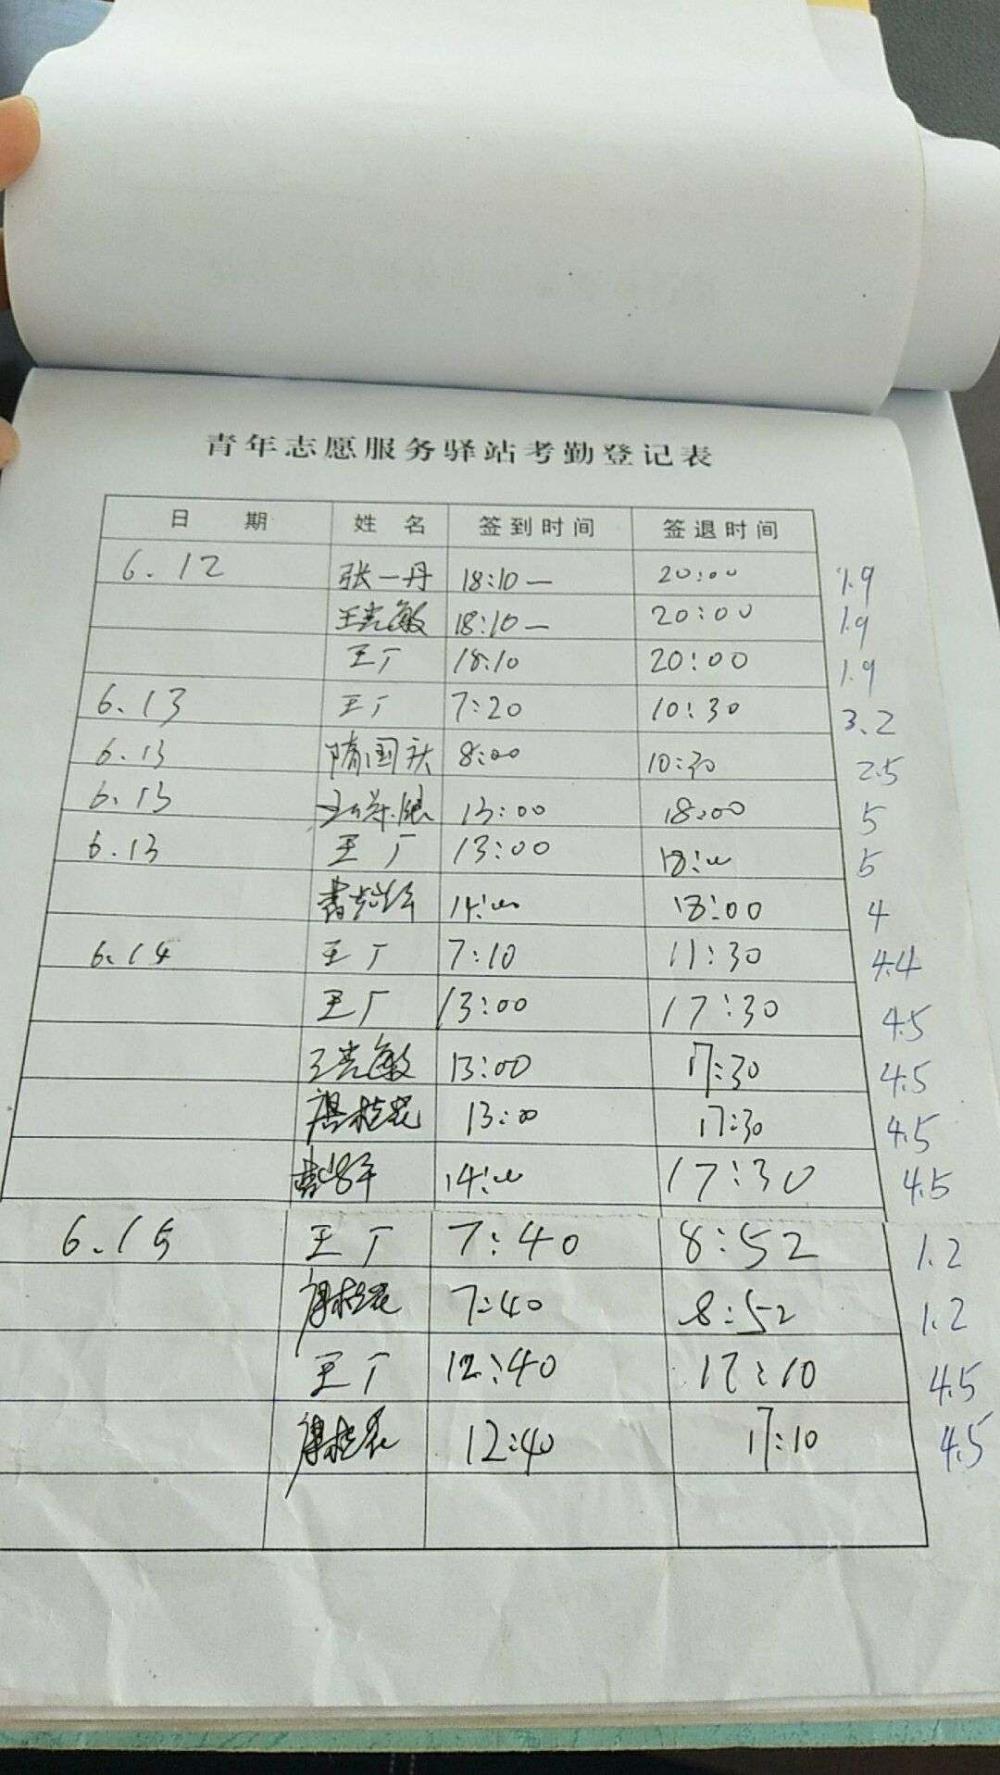 青年志愿服务驿站考勤登记表
日 期 姓 名 签到时间 签退时间
6.12 张一丹 18:10— 20:00 1.9
18:10— 20:00 1.9
王厂 18:10 20:00 1.9
6.13 王厂 7:20 10:30 3.2
6.13 隋国庆 8:00 10:30 2.5
6.13 13:00 18:00 5
6.13 王厂 13:00 18:00 5
14:00 18:00 4
6.14 王厂 7:10 11:30 4.4
王厂 13:00 17:30 4.5
13:00 17:30 4.5
13:00 17:30 4.5
14:00 17:30 4.5
6.15 王厂 7:40 8:52 1.2
7:40 8:52 1.2
王厂 12:40 17:10 4.5
12:40 17:10 4.5